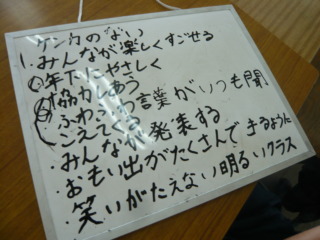 ケンカのない
1. みんなが楽しくすごせる
年下にやさしく
協力しあう
ふわふわ言葉がいつも聞
こえてくる
・みんなが発表する
・おもい出がたくさんできるように
・笑いがたえない明るいクラス